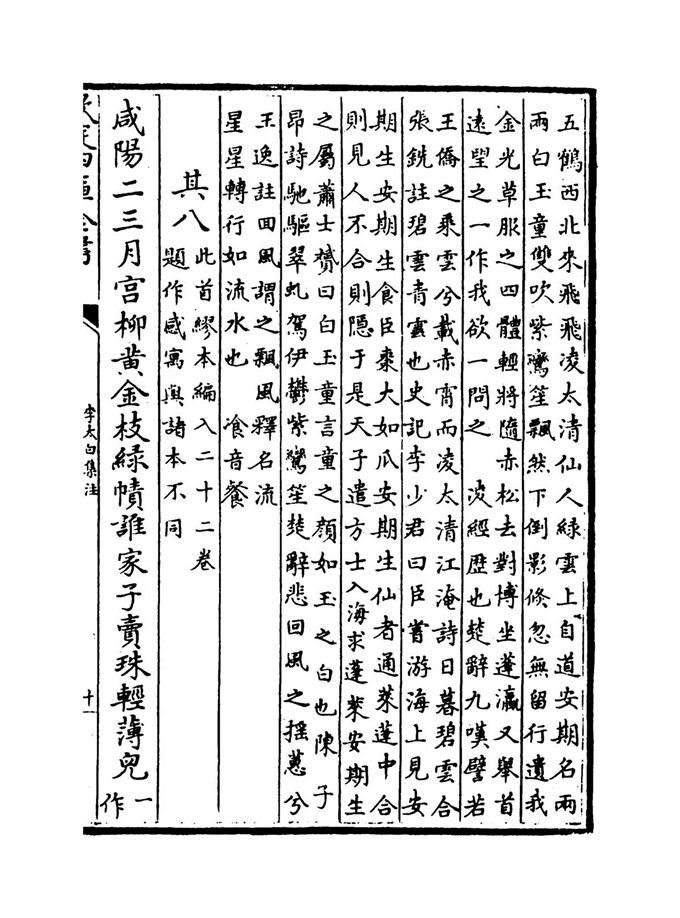 五鶴西北來飛飛凌太清仙人緑雲上自道安期名兩
兩白玉童雙吹紫鸞笙飄然下倒影倐忽無留行遺我
金光草服之四體輕將隨赤松去對博坐蓬瀛又舉首
遠望之一作我欲一問之　凌經歴也楚辭九嘆譬若
王僑之乗雲兮載赤霄而凌太清江淹詩日暮碧雲合
張銑註碧雲青雲也史記李少君曰臣嘗游海上見安
期生安期生食臣棗大如瓜安期生仙者通萊蓬中合
則見人不合則隠于是天子遣方士入海求蓬萊安期生
之屬蕭士贇曰白玉童言童之顔如玉之白也陳子
昂詩馳驅翠虬駕伊鬱紫鸞笙楚辭悲回風之摇蕙兮
王逸註回風謂之飄風釋名流
星星轉行如流水也　飡音餐
其八
此首繆本編入二十二卷
題作感寓與諸本不同
咸陽二三月宫柳黄金枝緑幘誰家子賣珠輕薄兒
一作
欽定四庫全書
李太白集注